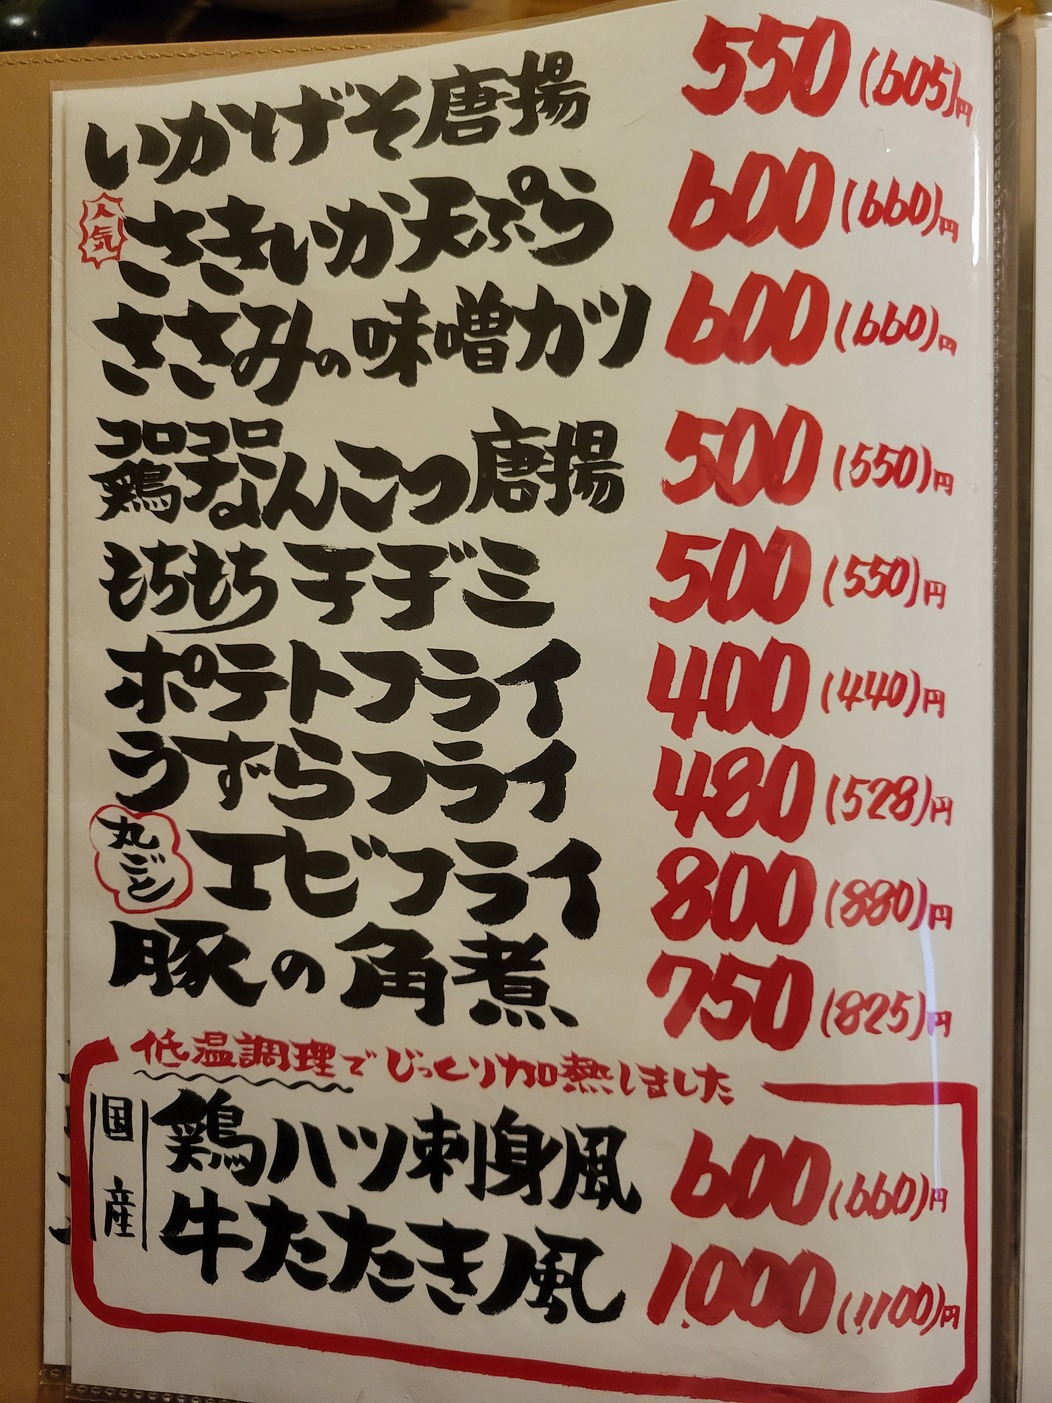 いかげそ唐揚 550(605)円
人気 さきいか天ぷら 600(660)円
ささみの味噌カツ 600(660)円
コロコロ
鶏なんこつ唐揚 500(550)円
もちもちチヂミ 500(550)円
ポテトフライ 400(440)円
うずらフライ 480(528)円
丸ごと エビフライ 800(880)円
豚の角煮 750(825)円
低温調理でじっくり加熱しました
国産
鶏ハツ刺身風 600(660)円
牛たたき風 1,000(1,100)円